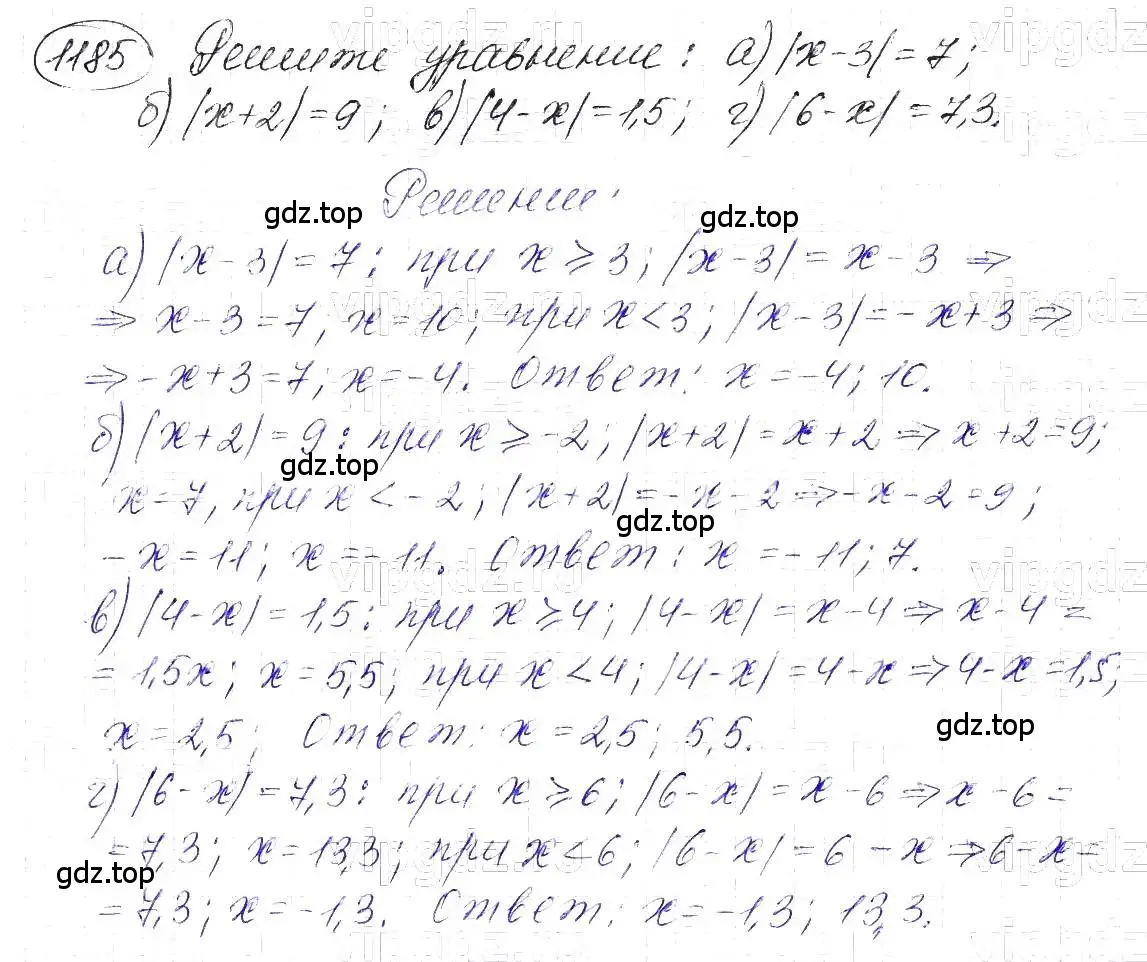 1185 Решите уравнение: а) |x-3|=7;
б) |x+2|=9; в) |4-x|=1,5; г) |6-x|=7,3.
Решение:
gdz.top gdz.top
а) |x-3|=7: при x⩾3; |x-3|=x-3 ⇒
⇒ x-3=7, x=10; при x<3; |x-3|=-x+3 ⇒
⇒ -x+3=7; x=-4. Ответ: x=-4; 10.
б) |x+2|=9: при x⩾-2; |x+2|=x+2 ⇒ x+2=9;
gdz.top
x=7, при x<-2; |x+2|=-x-2 ⇒ -x-2=9;
gdz.top
-x=11; x=-11. Ответ: x=-11; 7.
в) |4-x|=1,5: при x⩾4; |4-x|=x-4 ⇒ x-4=
=1,5x; x=5,5; при x<4; |4-x|=4-x ⇒ 4-x=1,5;
x=2,5; Ответ: x=2,5; 5,5.
gdz.top
г) |6-x|=7,3: при x⩾6; |6-x|=x-6 ⇒ x-6=
=7,3; x=13,3; при x<6; |6-x|=6-x ⇒ 6-x=
gdz.top
=7,3; x=-1,3. Ответ: x=-1,3; 13,3.